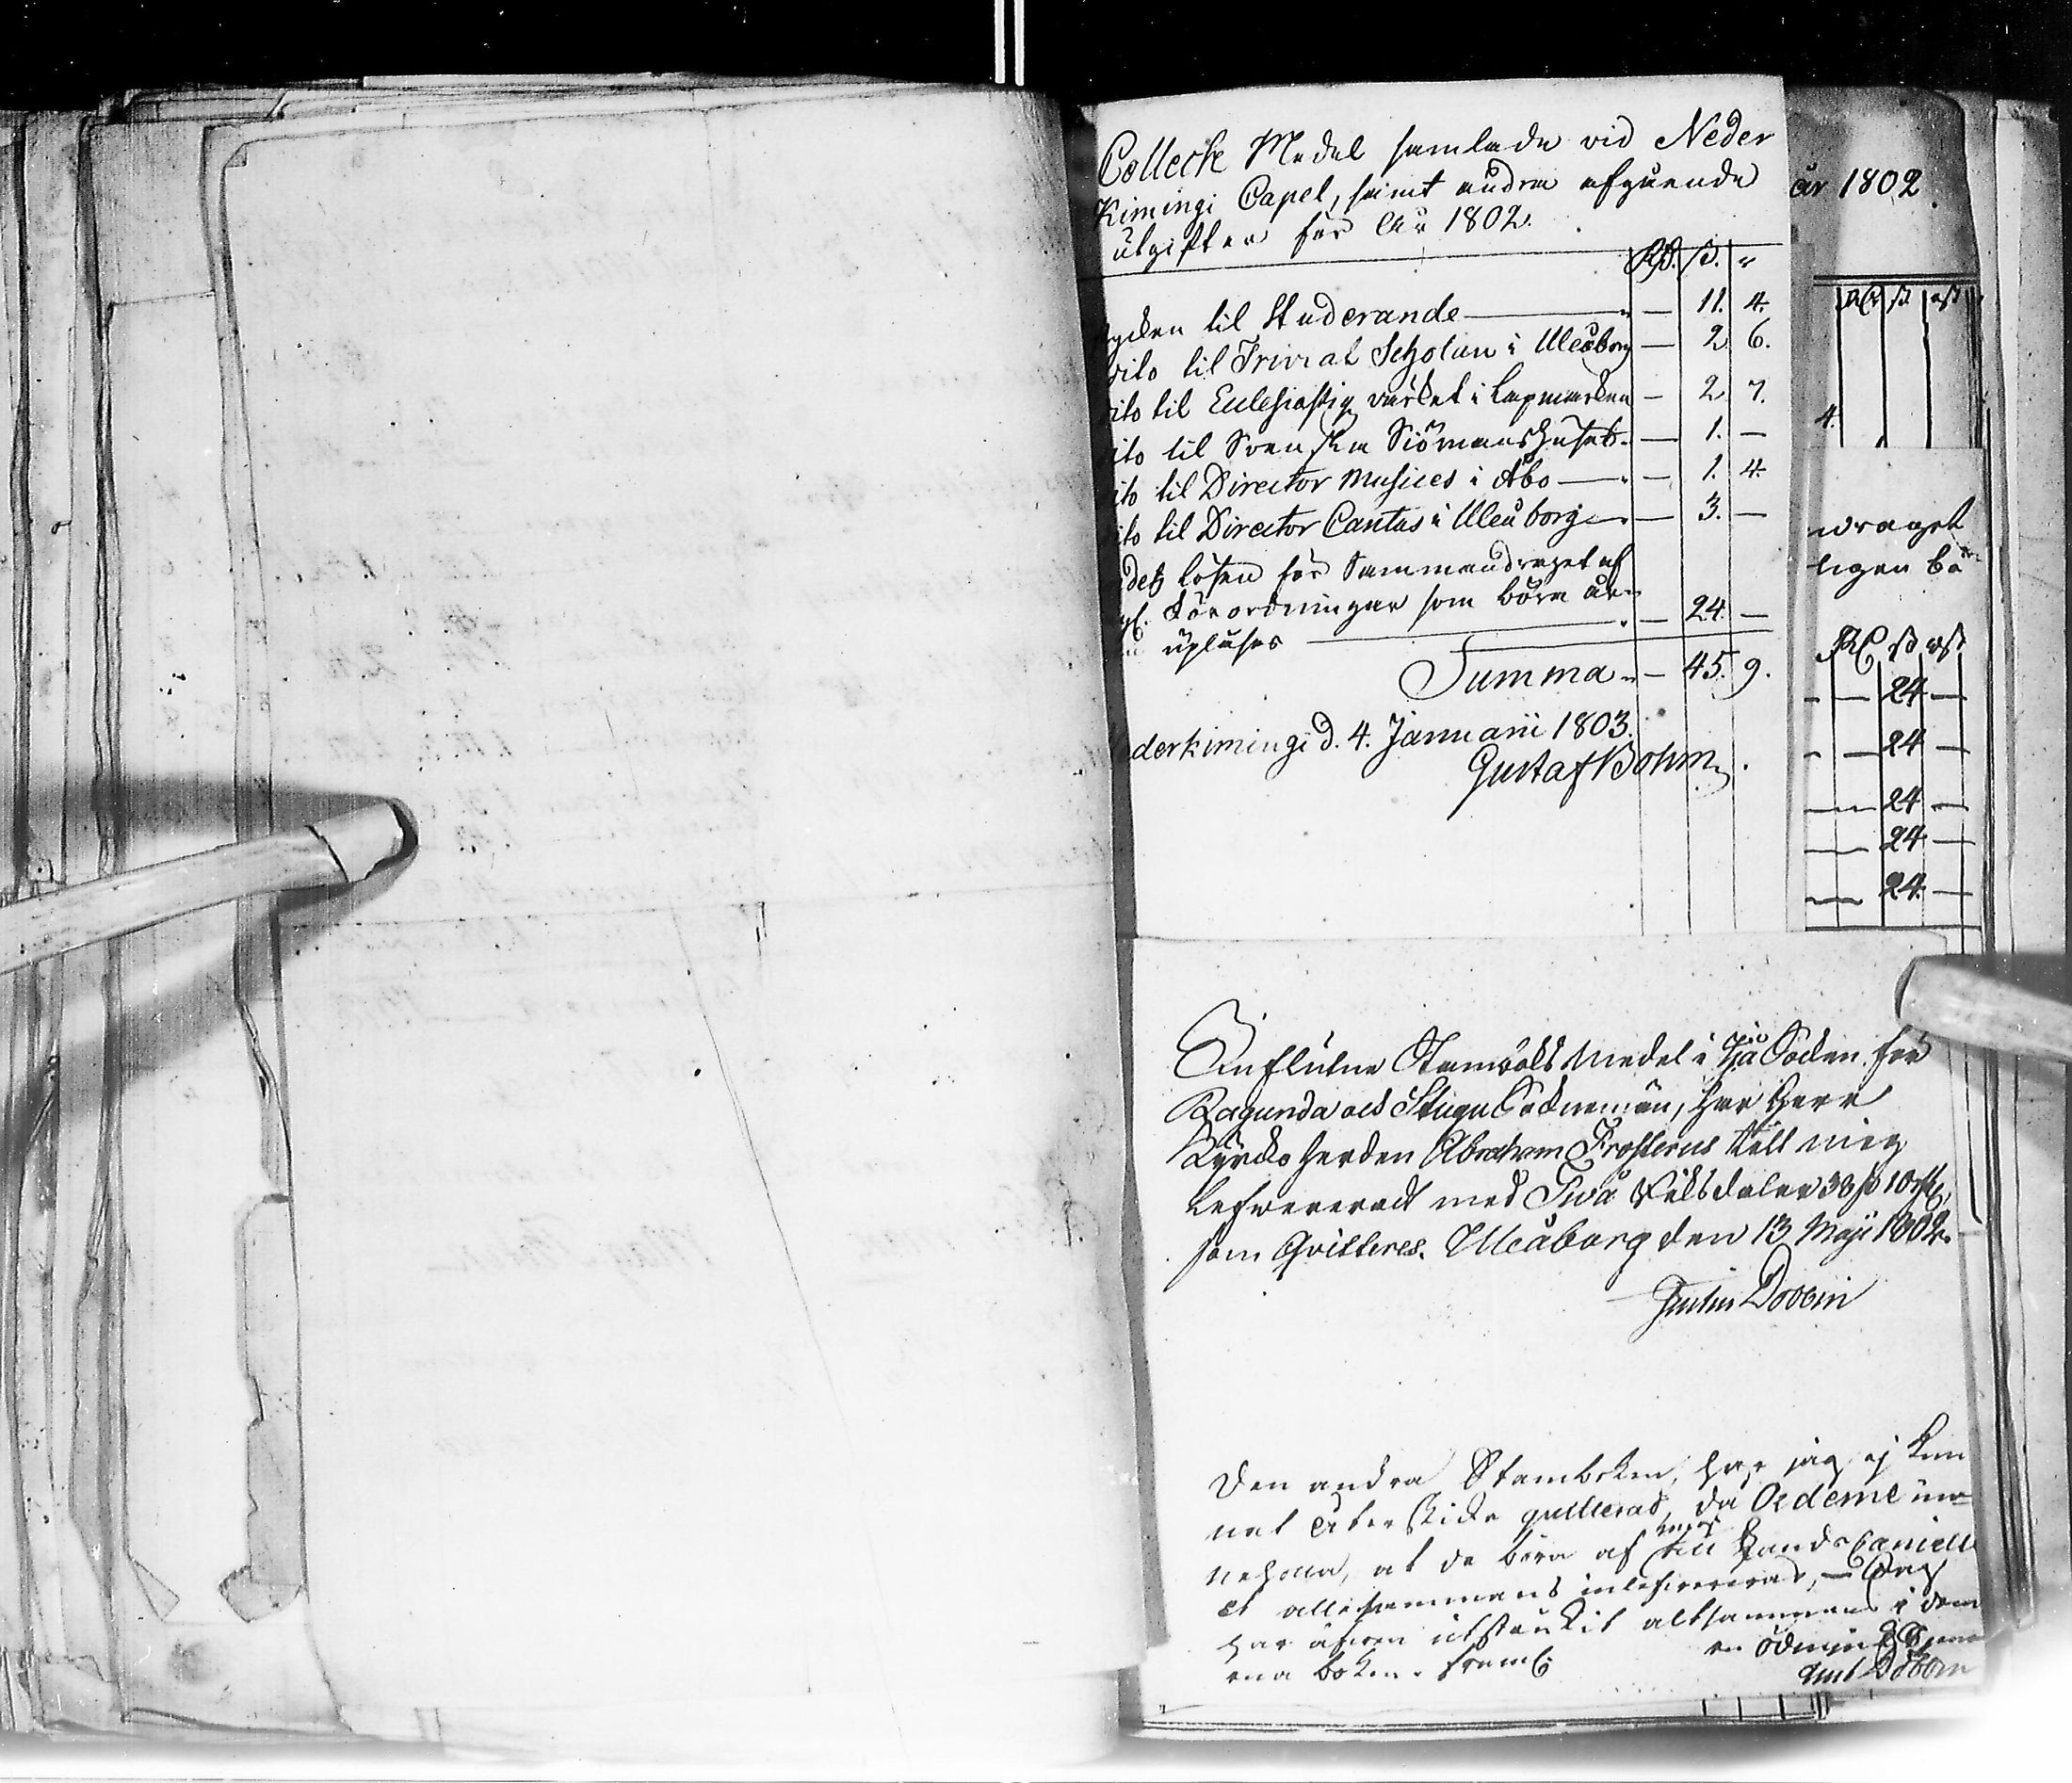 Collecte Medel samlade vid Neder
Kimingi Capel, samt andra afgående
utgifter för År 1802.
Rd. ß. r
til Studerande — 11. 4.
dito til Trivial Scholan i Uleåborg — 2 6.
dito til Ecclesiastiq värket i Lapmarken — 2 7.
ito til Svenska Siömanshuset. — 1. —
ito til Director Musices i Åbo — 1. 4.
ito til Director Cantus i Uleåborg — 3. —
lösen för Sammandraget af
Förordningar som böra år
upläses — 24. —
Summa — 45. 9.
derkimingi d. 4. Januarii 1803.
Gustaf Bohm
år 1802.
4.
draget
ligen bö
24 —
24 —
24 —
24 —
24. —
Influtne Stamboks Medel i Socken för
Ragunda och Stugu Socknemän, har Herr
Kyrckoherden Abraham Frosterus till mig
Lefwereradt med Två Riksdaler 38 ß 10
som Qvitteres. Uleåborg den 13 Maji 1802.
Dobbin
Den andra Stamboken, har jag ej kun
nat återskicka qvitterad, då de
at de böra af Lands Cancelli
et allesammans inlefvereras, — Jag
har äfven utstrukit altsammans i
boken.